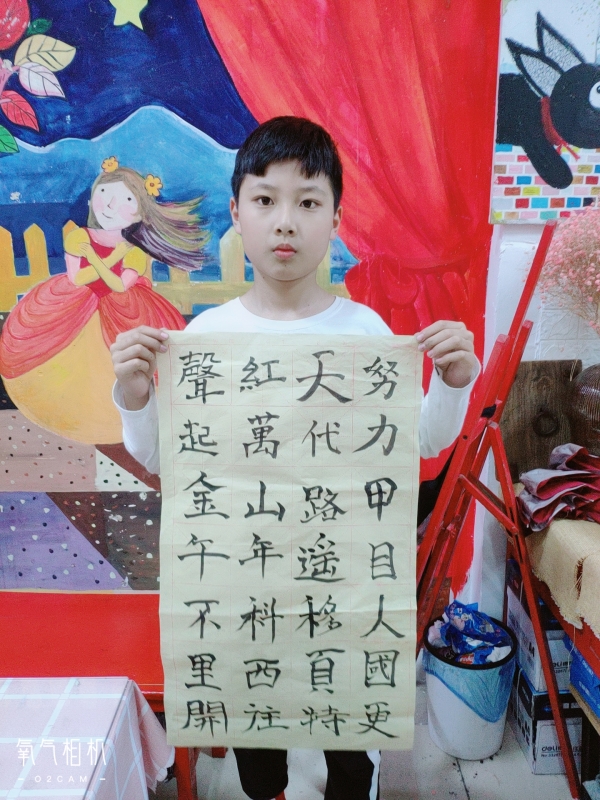 努力甲目人國更
天代路遥移頁特
紅萬山年科西往
聲起金午不里開
氧气相机
O2CAM